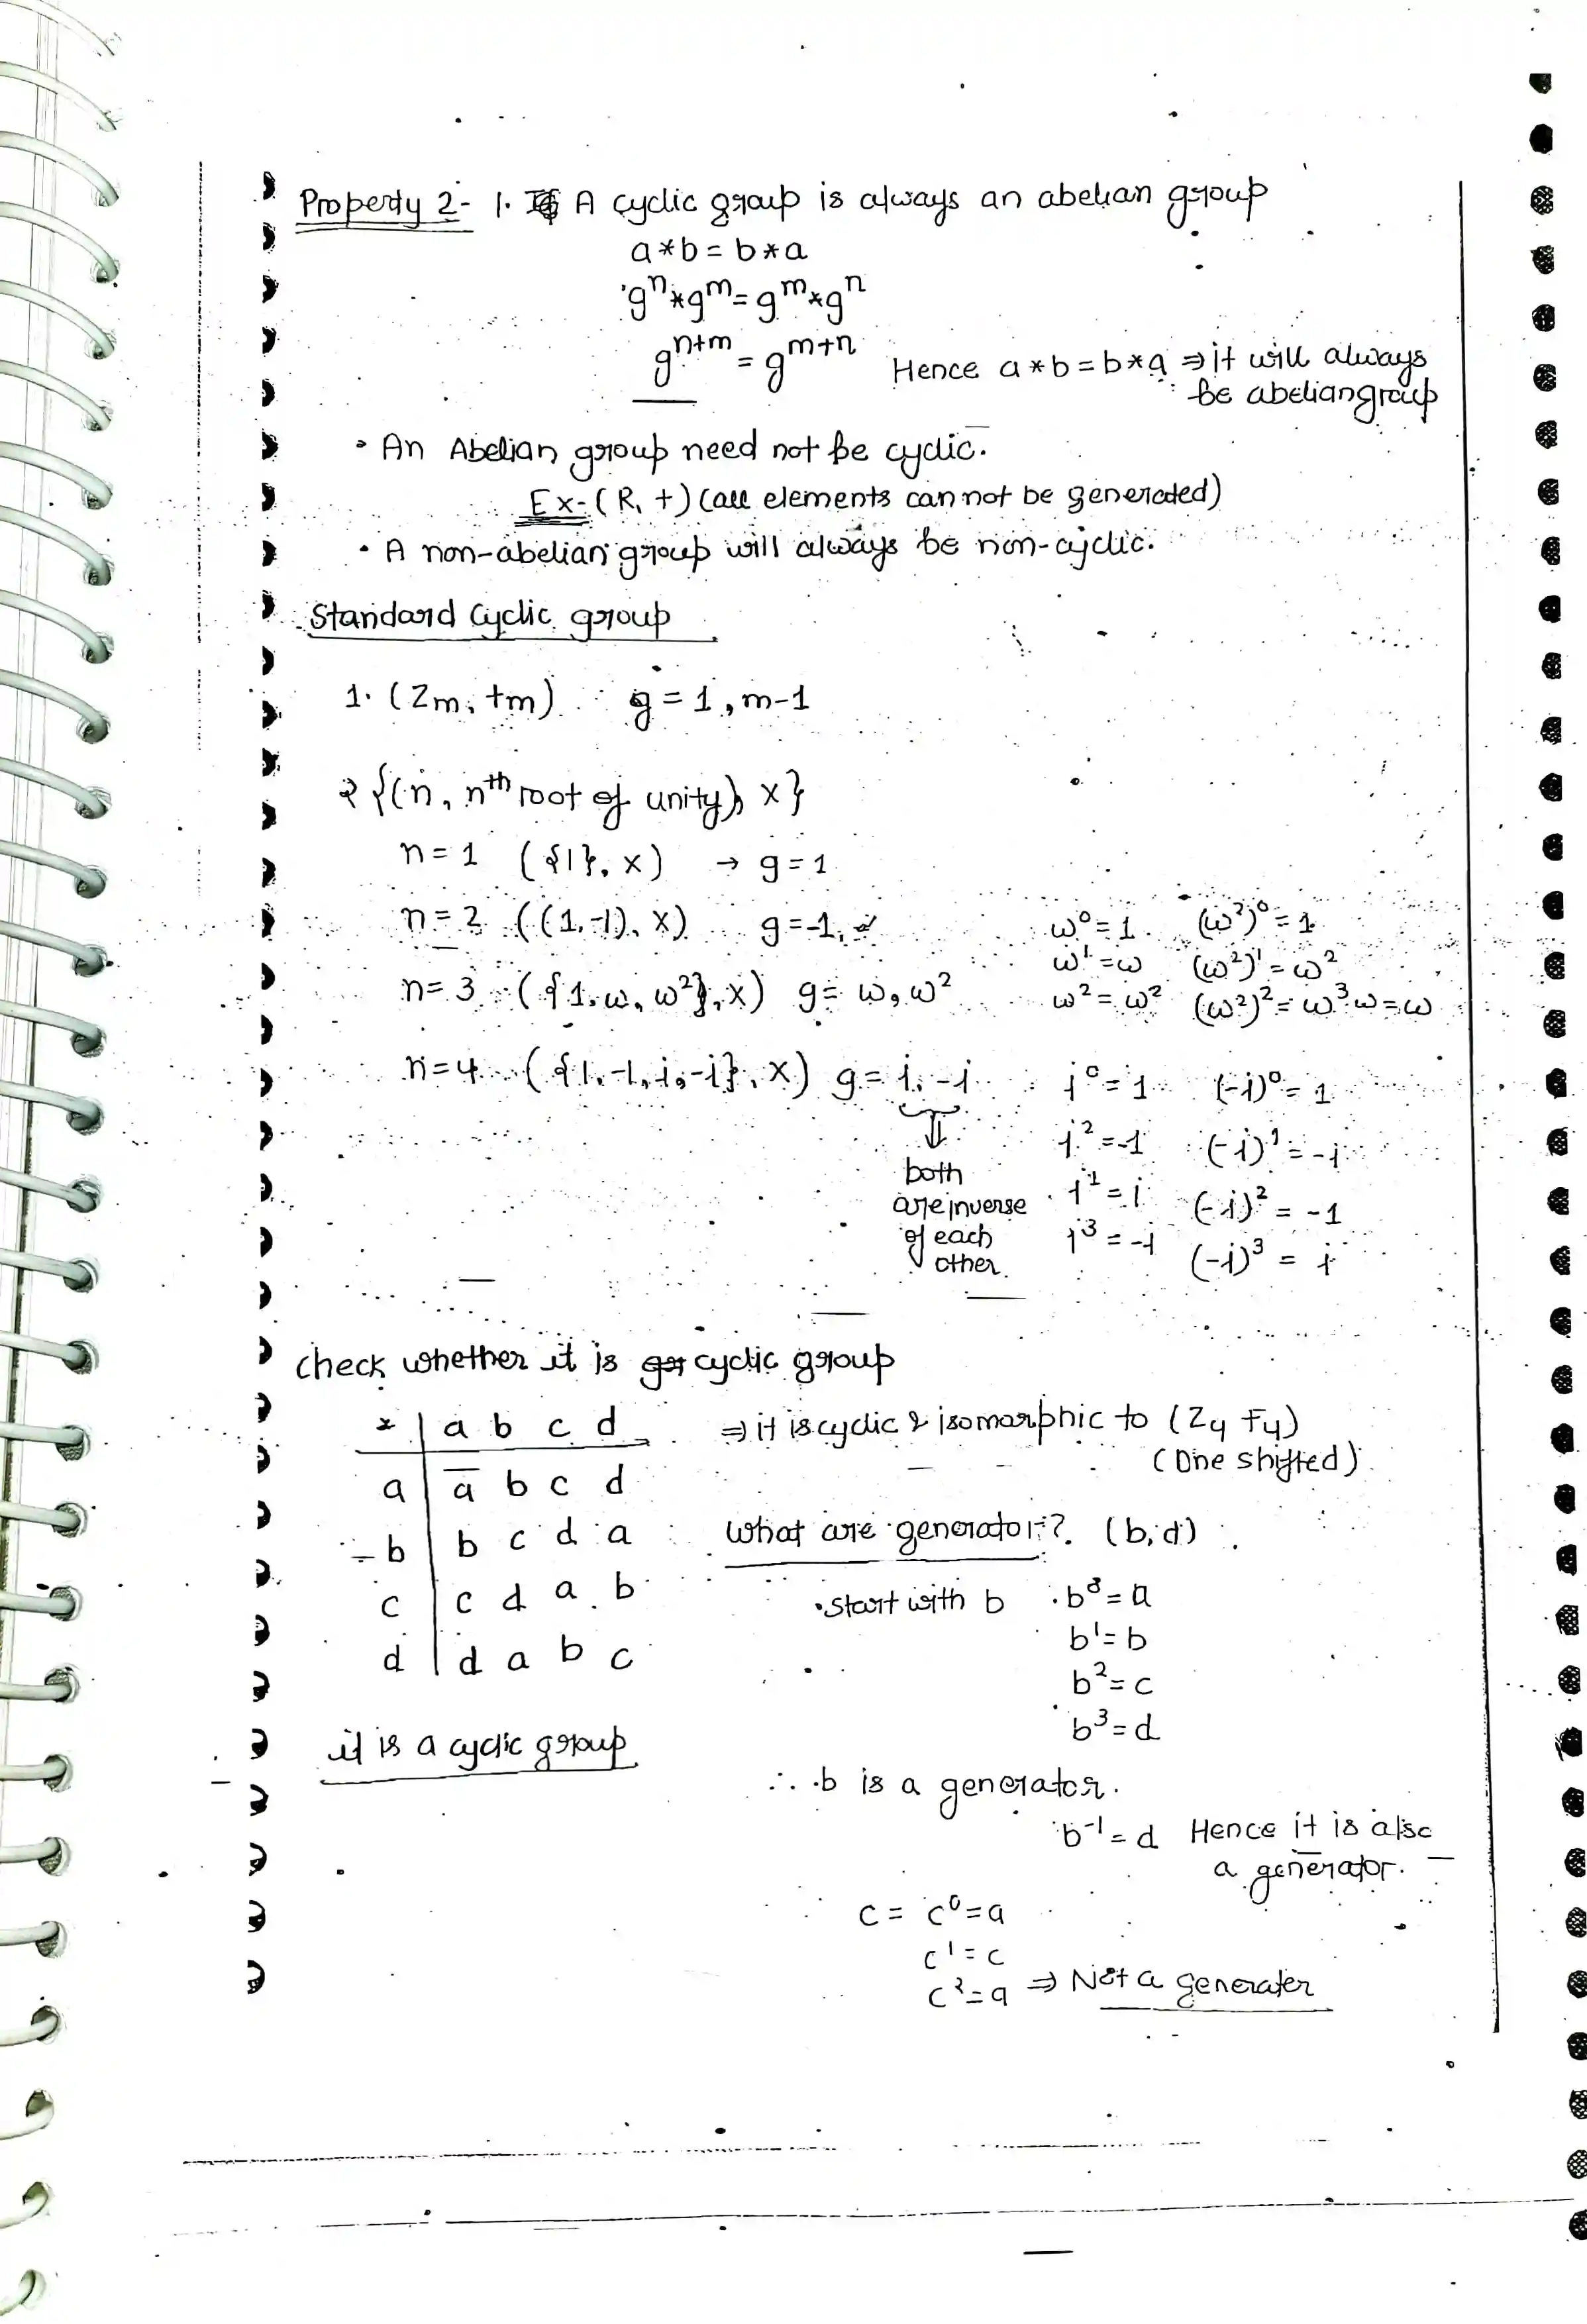 Property 2- 1. A cyclic group is always an abelian group
a*b = b*a
gⁿ*gᵐ = gᵐ*gⁿ
gⁿ⁺ᵐ = gᵐ⁺ⁿ Hence a*b = b*a ⇒ it will always
be abelian group
• An Abelian group need not be cyclic.
Ex- (R, +) (all elements can not be generated)
• A non-abelian group will always be non-cyclic.
Standard Cyclic group
1. (Zm, +m) g = 1, m-1
2 {(n, nᵗʰ root of unity), x}
n = 1 ({1}, x) → g = 1
n = 2 ((1, -1), x) g = -1,
ω⁰ = 1 (ω²)⁰ = 1
ω¹ = ω (ω²)¹ = ω²
n = 3 ({1, ω, ω²}, x) g = ω, ω² ω² = ω² (ω²)² = ω³.ω = ω
n = 4 ({1, -1, i, -i}, x) g = i, -i i⁰ = 1 (-i)⁰ = 1
⇓ i² = -1 (-i)¹ = -i
both
are inverse i¹ = i (-i)² = -1
of each i³ = -i (-i)³ = i
other.
check whether it is cyclic group
* | a b c d ⇒ it is cyclic & isomorphic to (Z4 +4)
(One shifted)
a | a b c d
b | b c d a What are generator? (b, d)
c | c d a b • Start with b b⁰ = a
b¹ = b
d | d a b c
b² = c
b³ = d
it is a cyclic group
∴ b is a generator.
b⁻¹ = d Hence it is also
a generator.
c = c⁰ = a
c¹ = c
c² = a ⇒ Not a generater